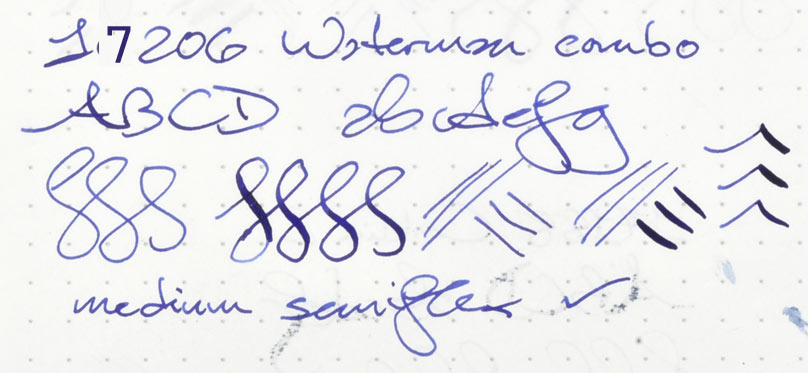 1.7206 Waterman combo
ABCD abcdefg
medium semiflex